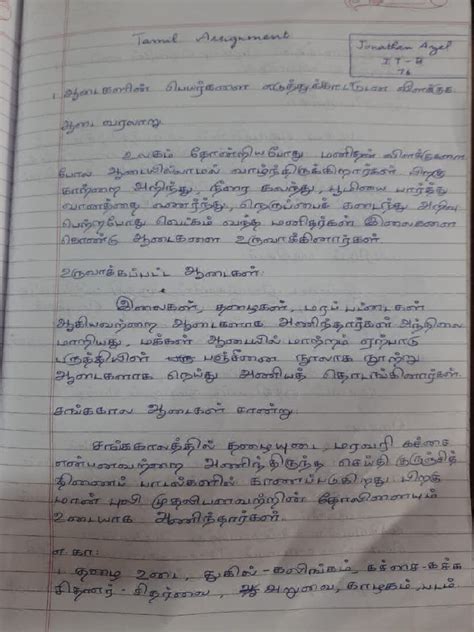 Tamil Assignment
Jonathan Azel
IT - B
76
1. ஆடைகளின் பெயர்களை எடுத்துக்காட்டுடன் விளக்குக
ஆடை வரலாறு:
உலகம் தோன்றியபோது மனிதன் விலங்குகளை
போல ஆடையில்லாமல் வாழ்ந்திருக்கிறார்கள் பிறகு
காற்றை அறிந்து, நீரை கலந்து, பூமியை பார்த்து
வானத்தை உணர்ந்து, நெருப்பைக் கடைந்து அறிவு
பெற்றபோது வெட்கம் வந்த மனிதர்கள் இலைகளை
கொண்டு ஆடைகளை உருவாக்கினார்கள்.
உருவாக்கப்பட்ட ஆடைகள்:
இலைகள், தழைகள், மரப் பட்டைகள்
ஆகியவற்றை ஆடைகளாக அணிந்தார்கள் அந்நிலை
மாறியது, மக்கள் ஆடையில் மாற்றம் ஏற்பாடு
பருத்தியின் பஞ்சினை நூலாக நூற்று
ஆடைகளாக நெய்து அணியத் தொடங்கினார்கள்.
சங்ககால ஆடைகள் சான்று:
சங்ககாலத்தில் தழையுடை, மரவரி கச்சை
என்பனவற்றை அணிந்திருந்த செய்தி குறுஞ்சித்
திணைப் பாடல்களில் காணப்படுகிறது. பிறகு
மான் புலி முதலியனவற்றின் தோலினையும்
உடையாக அணிந்தார்கள்.
எ.கா:
1. தழை உடை, துகில் - கலிங்கம், கச்சை - கச்சு
சிதைர் - சிதர்வை, அறுவை, காழகம், படம்